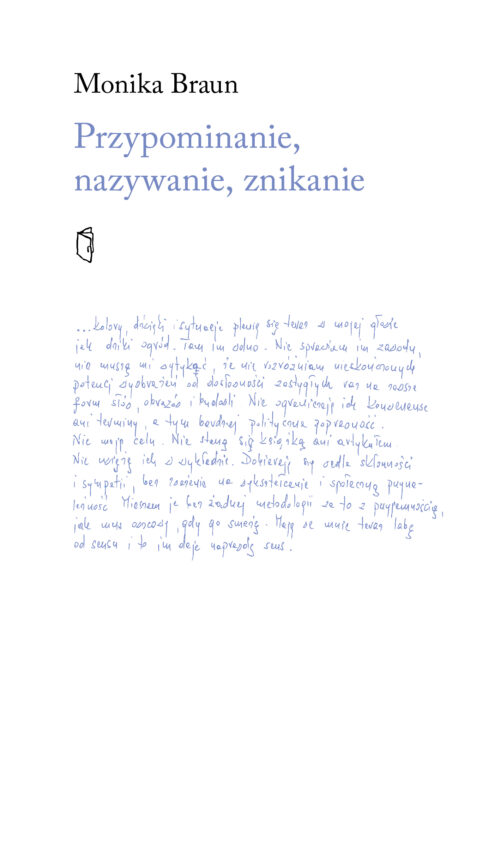 Monika Braun
Przypominanie,
nazywanie, znikanie
...kolory, dźwięki i sytuacje plenią się teraz w mojej głowie
jak dziki ogród. Tam im wolno. Nie sprawiam im zawodu,
nie muszą mi wytykać, że nie rozróżniam nieskończonych
potencji wyobrażeń od dosłowności zastygłych raz na zawsze
form słów, obrazów i budowli. Nie ograniczają ich konwenanse
ani terminy, a tym bardziej polityczna poprawność.
Nie mają celu. Nie staną się książką ani artykułem.
Nie uwiężę ich w wykładzie. Dobierają się wedle skłonności
i sympatii, bez zważania na wykształcenie i społeczną przyna-
leżność. Mieszam je bez żadnej metodologii za to z przyjemnością,
jak mus owocowy, gdy go smażę. Mają we mnie teraz labę
od sensu i to im daje naprawdę sens.